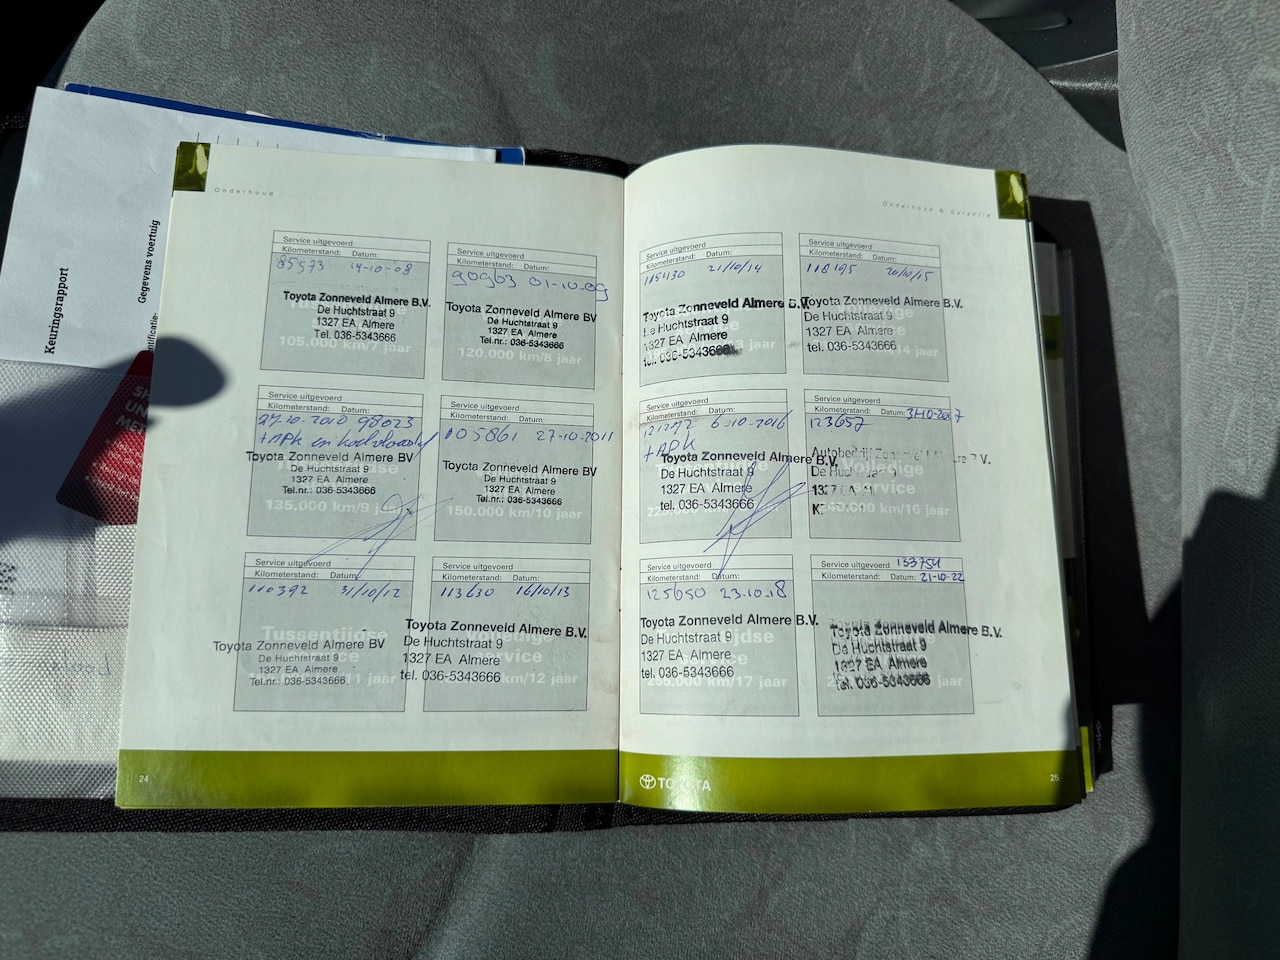 Keuringsrapport
Gegevens voertuig
Onderhoud
Service uitgevoerd
Kilometerstand: Datum:
85573 14-10-08
Toyota Zonneveld Almere B.V.
De Huchtstraat 9
1327 EA Almere
Tel. 036-5343666
105.000 km/7 jaar
Service uitgevoerd
Kilometerstand: Datum:
90963 01-10-09
Toyota Zonneveld Almere BV
De Huchtstraat 9
1327 EA Almere
Tel.nr.: 036-5343666
120.000 km/8 jaar
Service uitgevoerd
Kilometerstand: Datum:
27-10-2010 98023
+APK en
Toyota Zonneveld Almere BV
De Huchtstraat 9
1327 EA Almere
Tel.nr.: 036-5343666
135.000 km/9 jaar
Service uitgevoerd
Kilometerstand: Datum:
105861 27-10-2011
Toyota Zonneveld Almere BV
De Huchtstraat 9
1327 EA Almere
Tel.nr.: 036-5343666
150.000 km/10 jaar
Service uitgevoerd
Kilometerstand: Datum:
110392 31/10/12
Tussentijdse
Toyota Zonneveld Almere BV
De Huchtstraat 9
1327 EA Almere
Tel.nr.: 036-5343666
11 jaar
Service uitgevoerd
Kilometerstand: Datum:
113630 16/10/13
Volledige
Toyota Zonneveld Almere B.V.
De Huchtstraat 9
service
1327 EA Almere
tel. 036-5343666
km/12 jaar
24
Onderhoud & Garantie
Service uitgevoerd
Kilometerstand: Datum:
115430 21/10/14
Toyota Zonneveld Almere B.V.
De Huchtstraat 9
1327 EA Almere
tel. 036-5343666
jaar
Service uitgevoerd
Kilometerstand: Datum:
118195 20/10/15
Toyota Zonneveld Almere B.V.
De Huchtstraat 9
1327 EA Almere
tel. 036-5343666
14 jaar
Service uitgevoerd
Kilometerstand: Datum:
121272 6-10-2016
+APK
Toyota Zonneveld Almere B.V.
De Huchtstraat 9
1327 EA Almere
tel. 036-5343666
Service uitgevoerd
Kilometerstand: Datum: 31-10-2017
123657
Volledige
service
240.000 km/16 jaar
Service uitgevoerd
Kilometerstand: Datum:
125650 23-10-18
Toyota Zonneveld Almere B.V.
De Huchtstraat 9
1327 EA Almere
tel. 036-5343666
255.000 km/17 jaar
Service uitgevoerd 133754
Kilometerstand: Datum: 21-10-22
Toyota Zonneveld Almere B.V.
De Huchtstraat 9
1327 EA Almere
tel. 036-5343666
jaar
TOYOTA
25